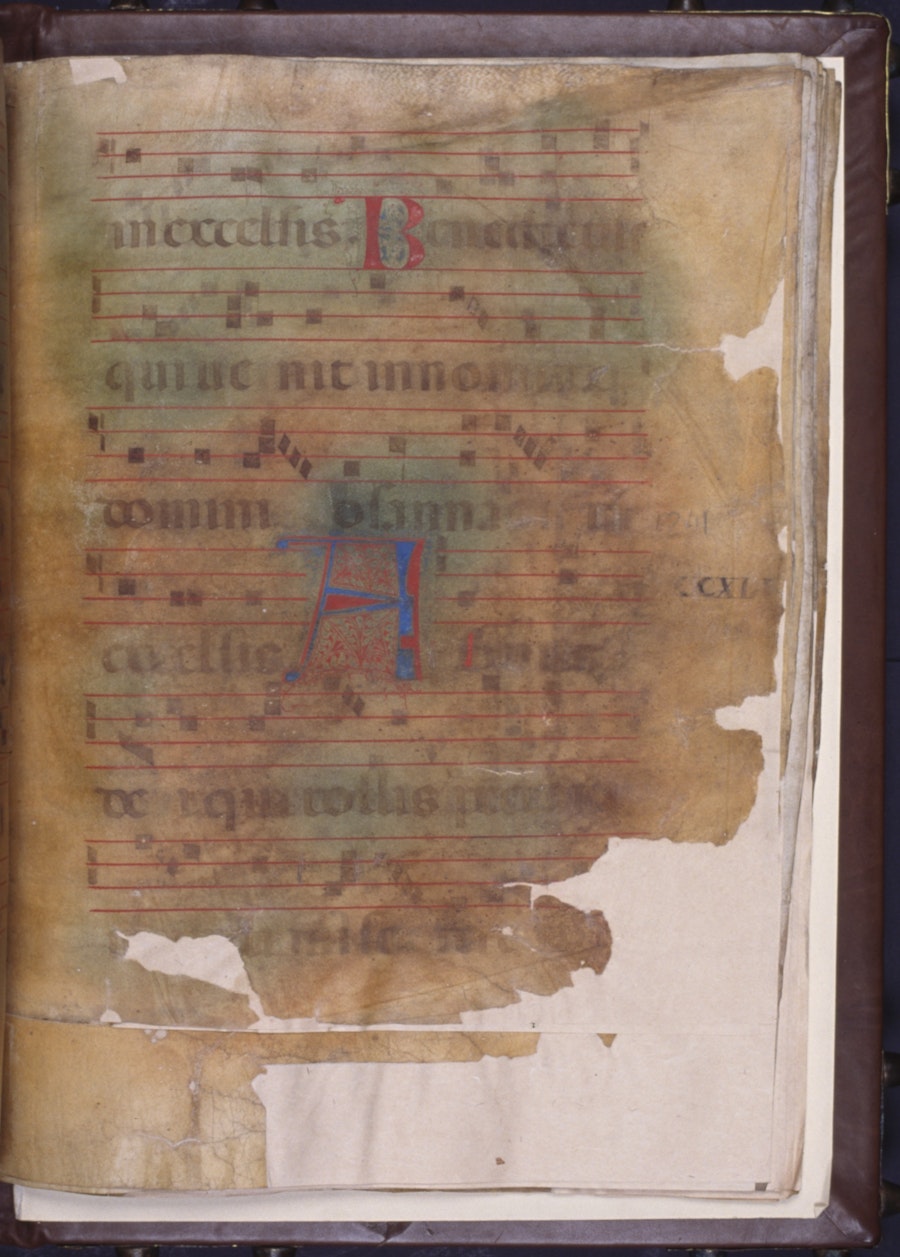 in excelsis. Benedictus
qui ue nit in nomine
domini osanna in
CCXLI
excelsis. A gnus
de i qui tollis pecca
mise